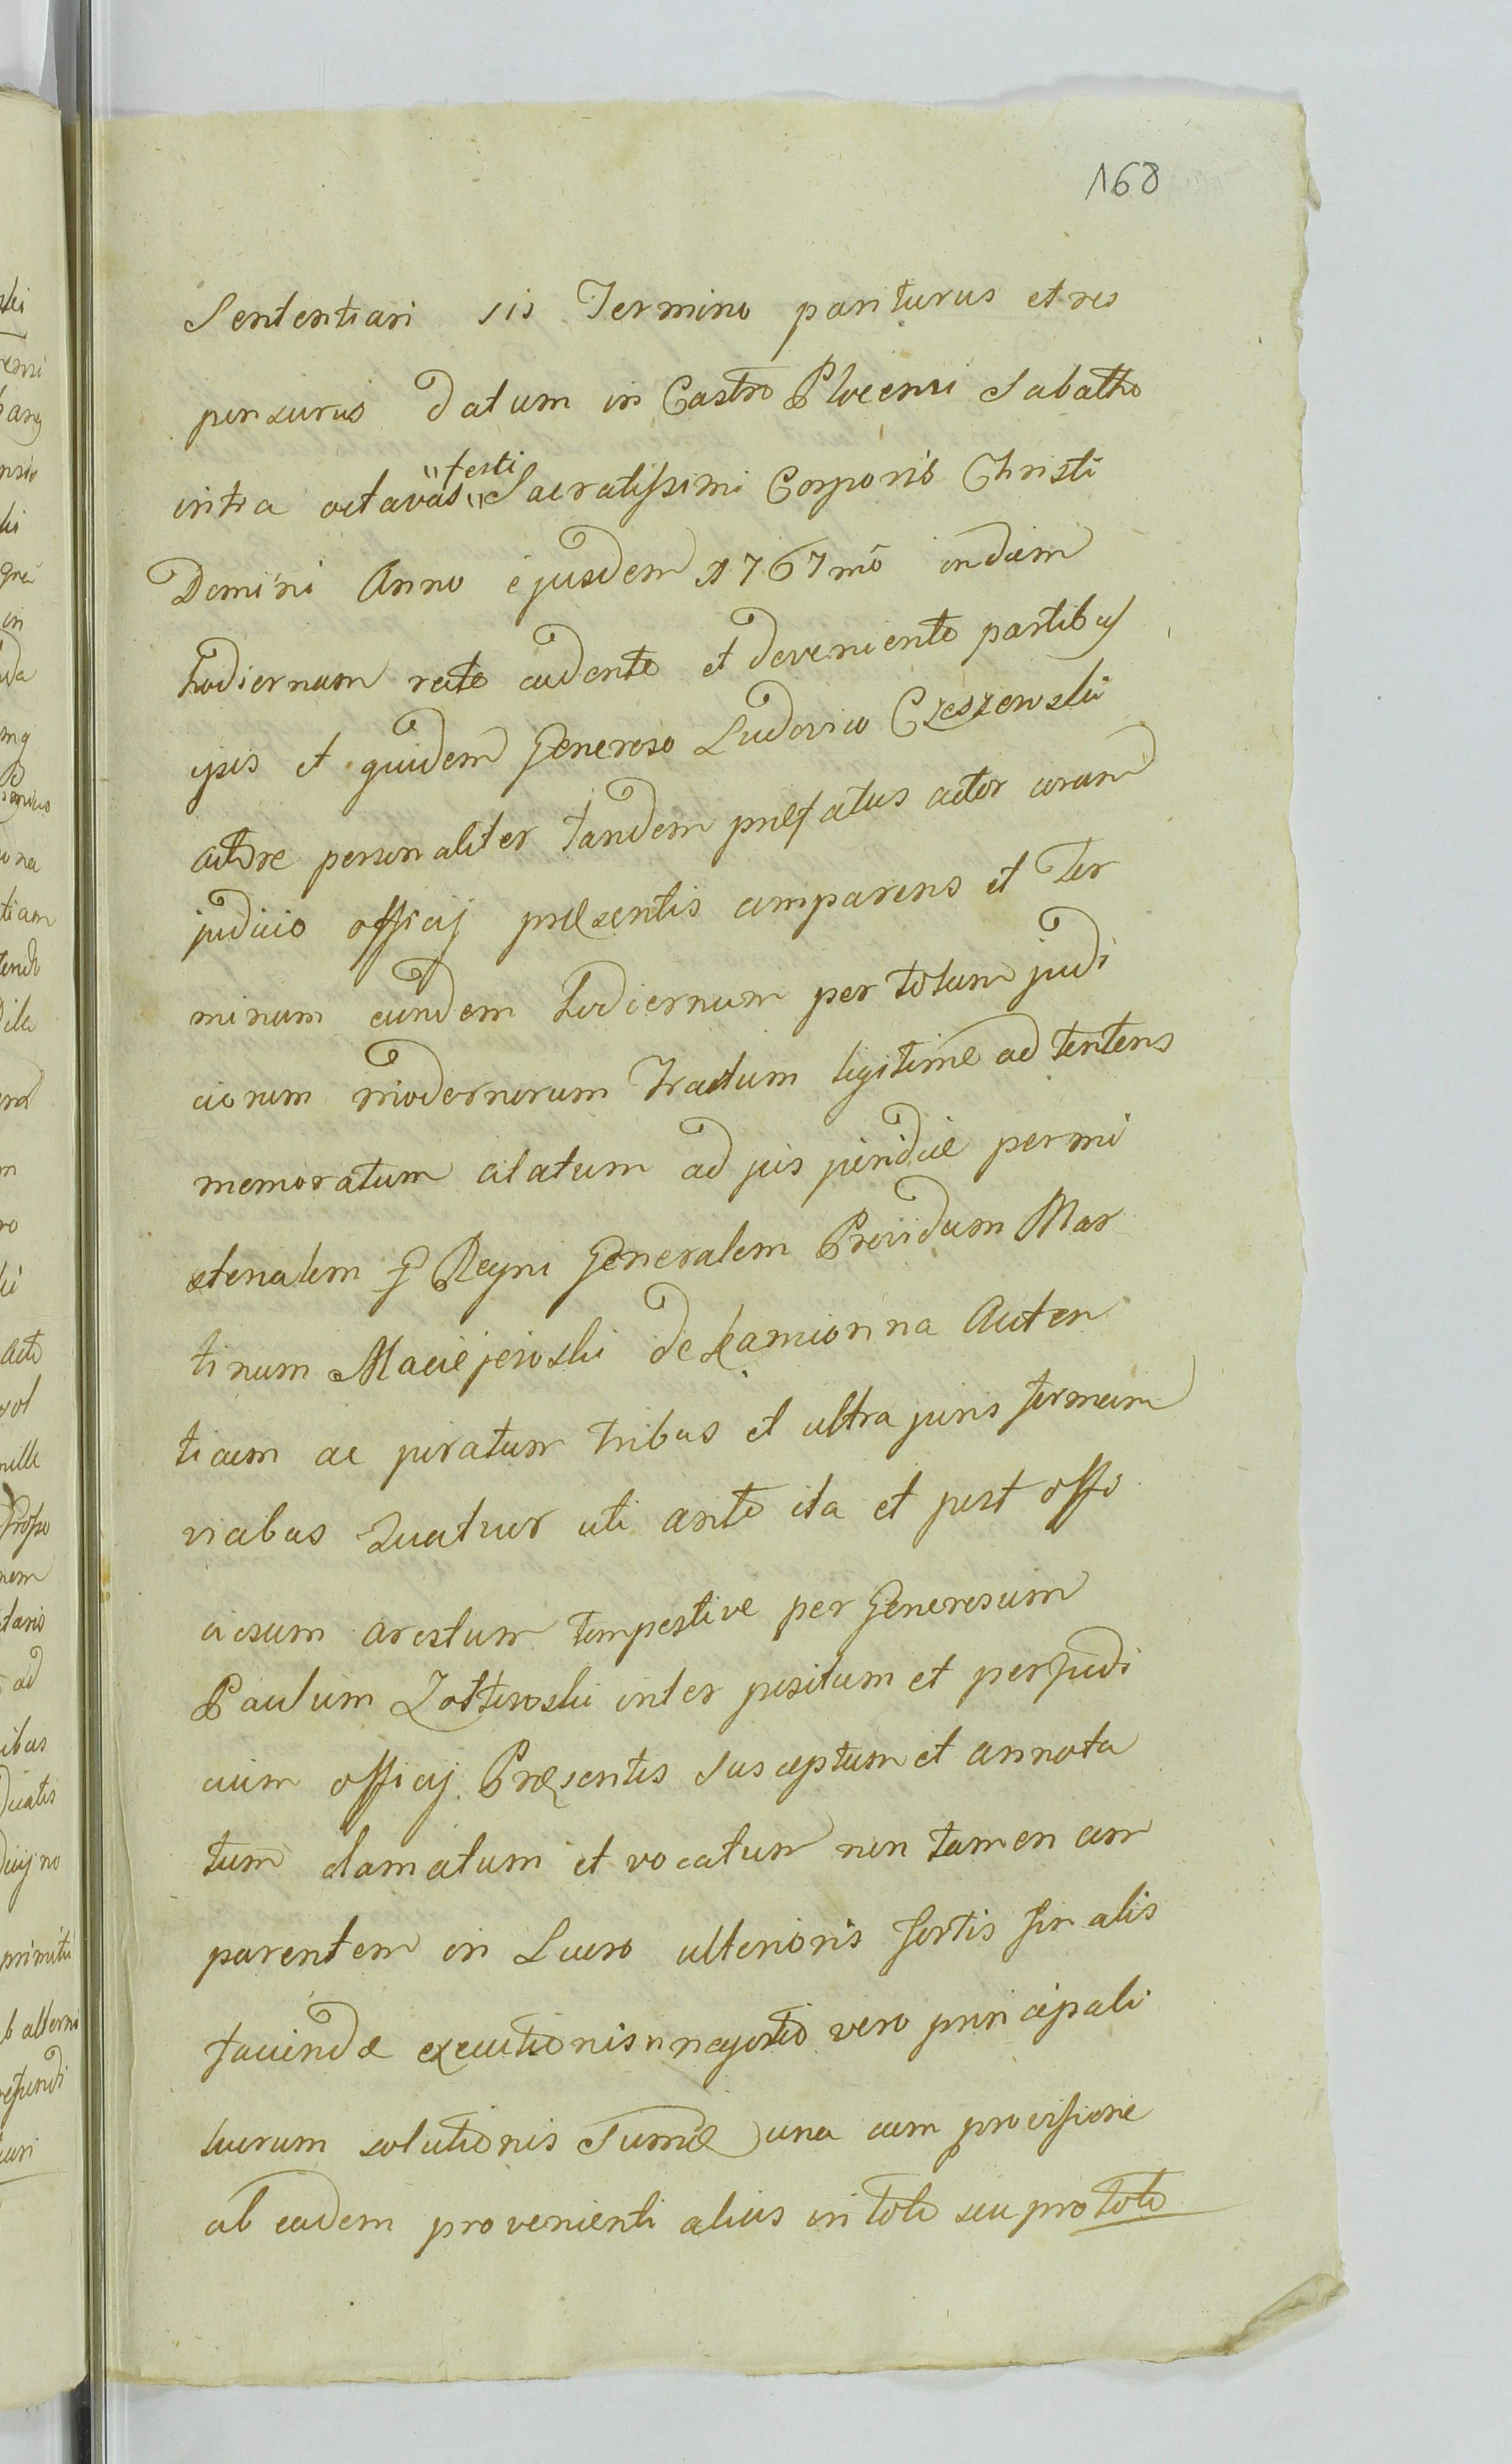 168
Sententiari sis Termino pariturus et res
ponsurus Datum in Castro Plocensi Sabatho
intra octavas "festi" Sacratissimi Corporis Christi
Domini Anno ejusdem 1767mō in diem
hodiernum recte cadente et deveniente partibus
ipsis et quidem Generoso Ludovico Czeszewski
actore personaliter tandem præfatus actor coram
judicio officij præsentis comparens et Ter
minum eundem hodiernum per totum judi
ciorum modernorum Tractum legitime ad tentens
memoratum citatum ad jus juridice per mi
sterialem Regni Generalem Providum Mar
tinum Maciejewski de Kamionna Auten
ticum ac juratum tribus et ultra juris formam
vicibus Quatuor uti ante ita et post offi
ciosum arestum tempestive per Generosum
Paulum Zottowski inter positum et per Judi
cium officij Præsentis Susceptum et annota
tum clamatum et vocatum non tamen com
parentem in Lucro ulterioris fortis finalis
faciendæ executionis in negotio vero principali
lucrum solutionis Summæ una cum provisione
ab eadem provenienti alias in toto seu pro toto